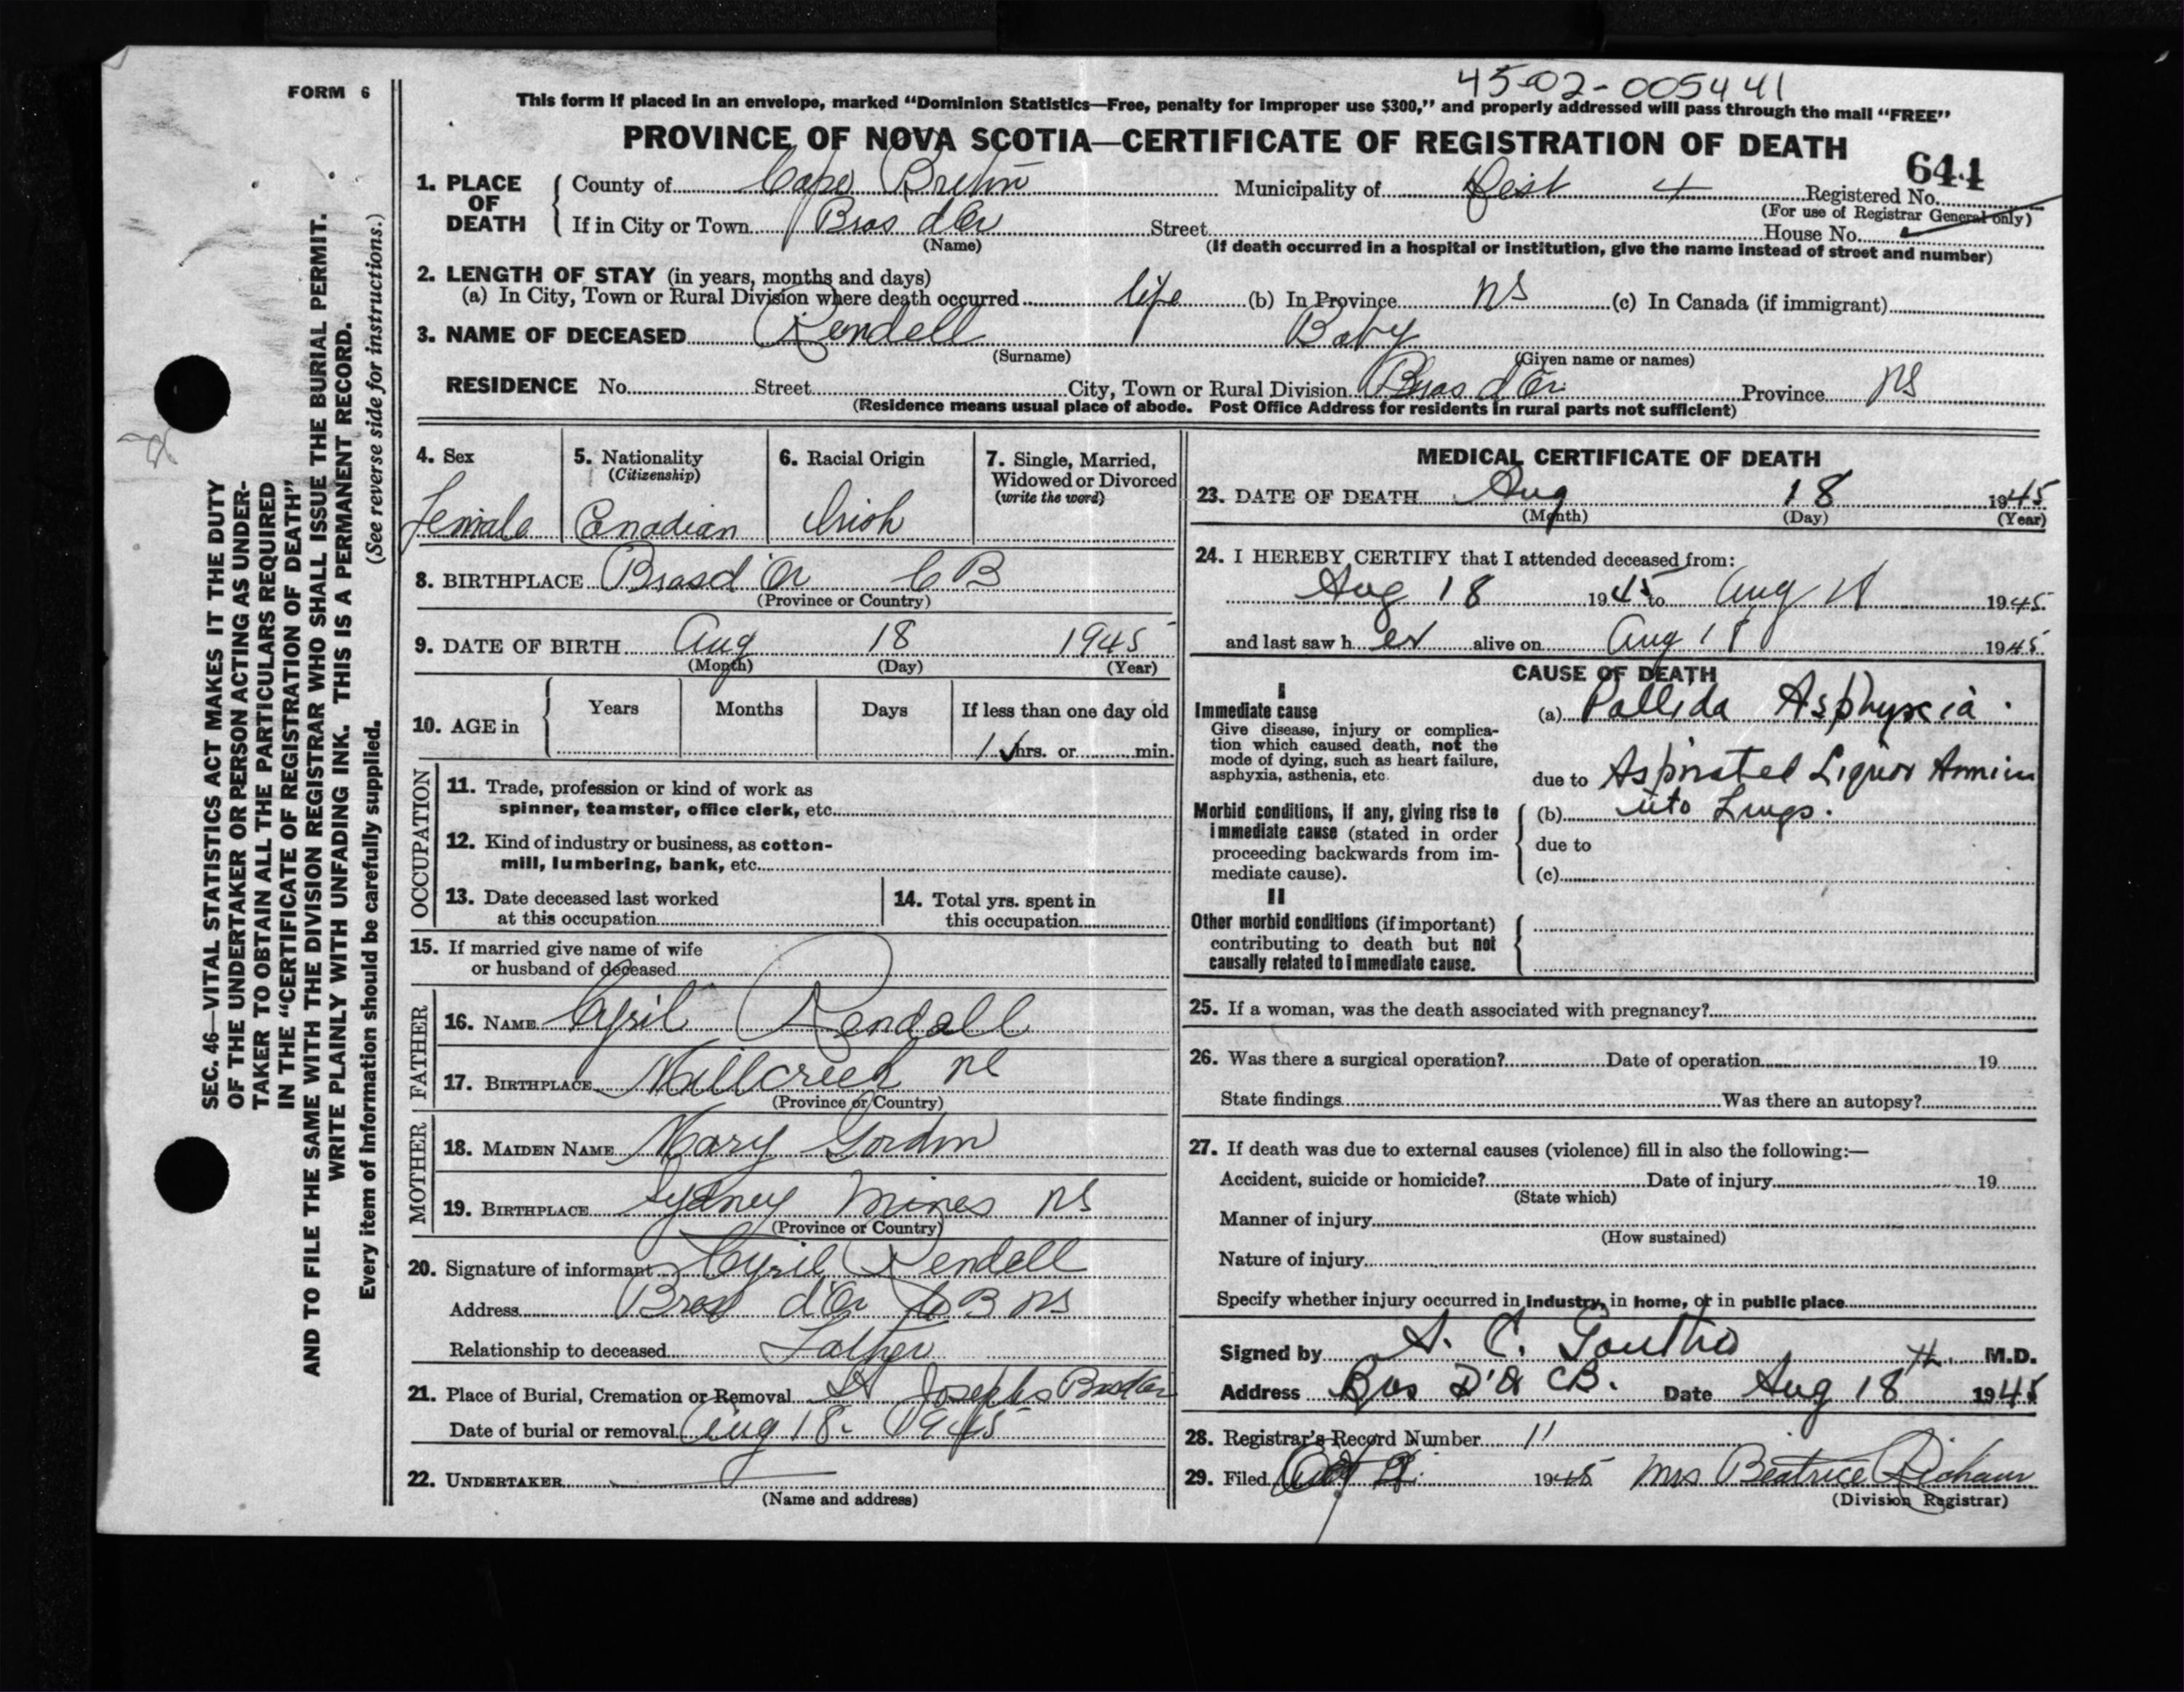 45-02-005441
FORM 6
This form if placed in an envelope, marked “Dominion Statistics—Free, penalty for improper use $300,” and properly addressed will pass through the mail “FREE”
PROVINCE OF NOVA SCOTIA—CERTIFICATE OF REGISTRATION OF DEATH
644
1. PLACE OF DEATH
County of Cape Breton Municipality of Dist 4 Registered No.
(For use of Registrar General only)
If in City or Town Bras d'Or Street House No.
(Name) (If death occurred in a hospital or institution, give the name instead of street and number)
2. LENGTH OF STAY (in years, months and days)
(a) In City, Town or Rural Division where death occurred life (b) In Province NS (c) In Canada (if immigrant)
3. NAME OF DECEASED Rendell Baby
(Surname) (Given name or names)
RESIDENCE No. Street City, Town or Rural Division Bras d'Or Province NS
(Residence means usual place of abode. Post Office Address for residents in rural parts not sufficient)
4. Sex Female
5. Nationality (Citizenship) Canadian
6. Racial Origin Irish
7. Single, Married, Widowed or Divorced (write the word)
8. BIRTHPLACE Bras d'Or C B
(Province or Country)
9. DATE OF BIRTH Aug 18 1945
(Month) (Day) (Year)
10. AGE in Years Months Days If less than one day old
1 hrs. or min.
OCCUPATION
11. Trade, profession or kind of work as
spinner, teamster, office clerk, etc.
12. Kind of industry or business, as cotton-
mill, lumbering, bank, etc.
13. Date deceased last worked
at this occupation
14. Total yrs. spent in
this occupation
15. If married give name of wife
or husband of deceased
FATHER
16. NAME Cyril Rendall
17. BIRTHPLACE Millcreek
(Province or Country)
MOTHER
18. MAIDEN NAME Mary Gordon
19. BIRTHPLACE Sydney Mines NS
(Province or Country)
20. Signature of informant Cyril Rendell
Address Bras d'Or C B NS
Relationship to deceased Father
21. Place of Burial, Cremation or Removal St Josephs Bras d'Or
Date of burial or removal Aug 18. 1945
22. UNDERTAKER
(Name and address)
MEDICAL CERTIFICATE OF DEATH
23. DATE OF DEATH Aug 18 1945
(Month) (Day) (Year)
24. I HEREBY CERTIFY that I attended deceased from:
Aug 18 1945 to Aug 18 1945
and last saw her alive on Aug 18 1945
CAUSE OF DEATH
I
Immediate cause
Give disease, injury or complica-
tion which caused death, not the
mode of dying, such as heart failure,
asphyxia, asthenia, etc.
(a) Pallida Asphyxia.
due to Aspirated Liquor Amnii
Morbid conditions, if any, giving rise to
immediate cause (stated in order
proceeding backwards from im-
mediate cause).
(b) into Lungs.
due to
(c)
II
Other morbid conditions (if important)
contributing to death but not
causally related to immediate cause.
25. If a woman, was the death associated with pregnancy?
26. Was there a surgical operation? Date of operation 19
State findings Was there an autopsy?
27. If death was due to external causes (violence) fill in also the following:—
Accident, suicide or homicide? Date of injury 19
(State which)
Manner of injury
(How sustained)
Nature of injury
Specify whether injury occurred in industry, in home, or in public place
Signed by A. C. M.D.
Address Bras D'Or CB. Date Aug 18th 1945
28. Registrar's Record Number 11
29. Filed 1945 Mrs Beatrice
(Division Registrar)
SEC. 46—VITAL STATISTICS ACT MAKES IT THE DUTY
OF THE UNDERTAKER OR PERSON ACTING AS UNDER-
TAKER TO OBTAIN ALL THE PARTICULARS REQUIRED
IN THE “CERTIFICATE OF REGISTRATION OF DEATH”
AND TO FILE THE SAME WITH THE DIVISION REGISTRAR WHO SHALL ISSUE THE BURIAL PERMIT.
WRITE PLAINLY WITH UNFADING INK. THIS IS A PERMANENT RECORD.
Every item of information should be carefully supplied. (See reverse side for instructions.)